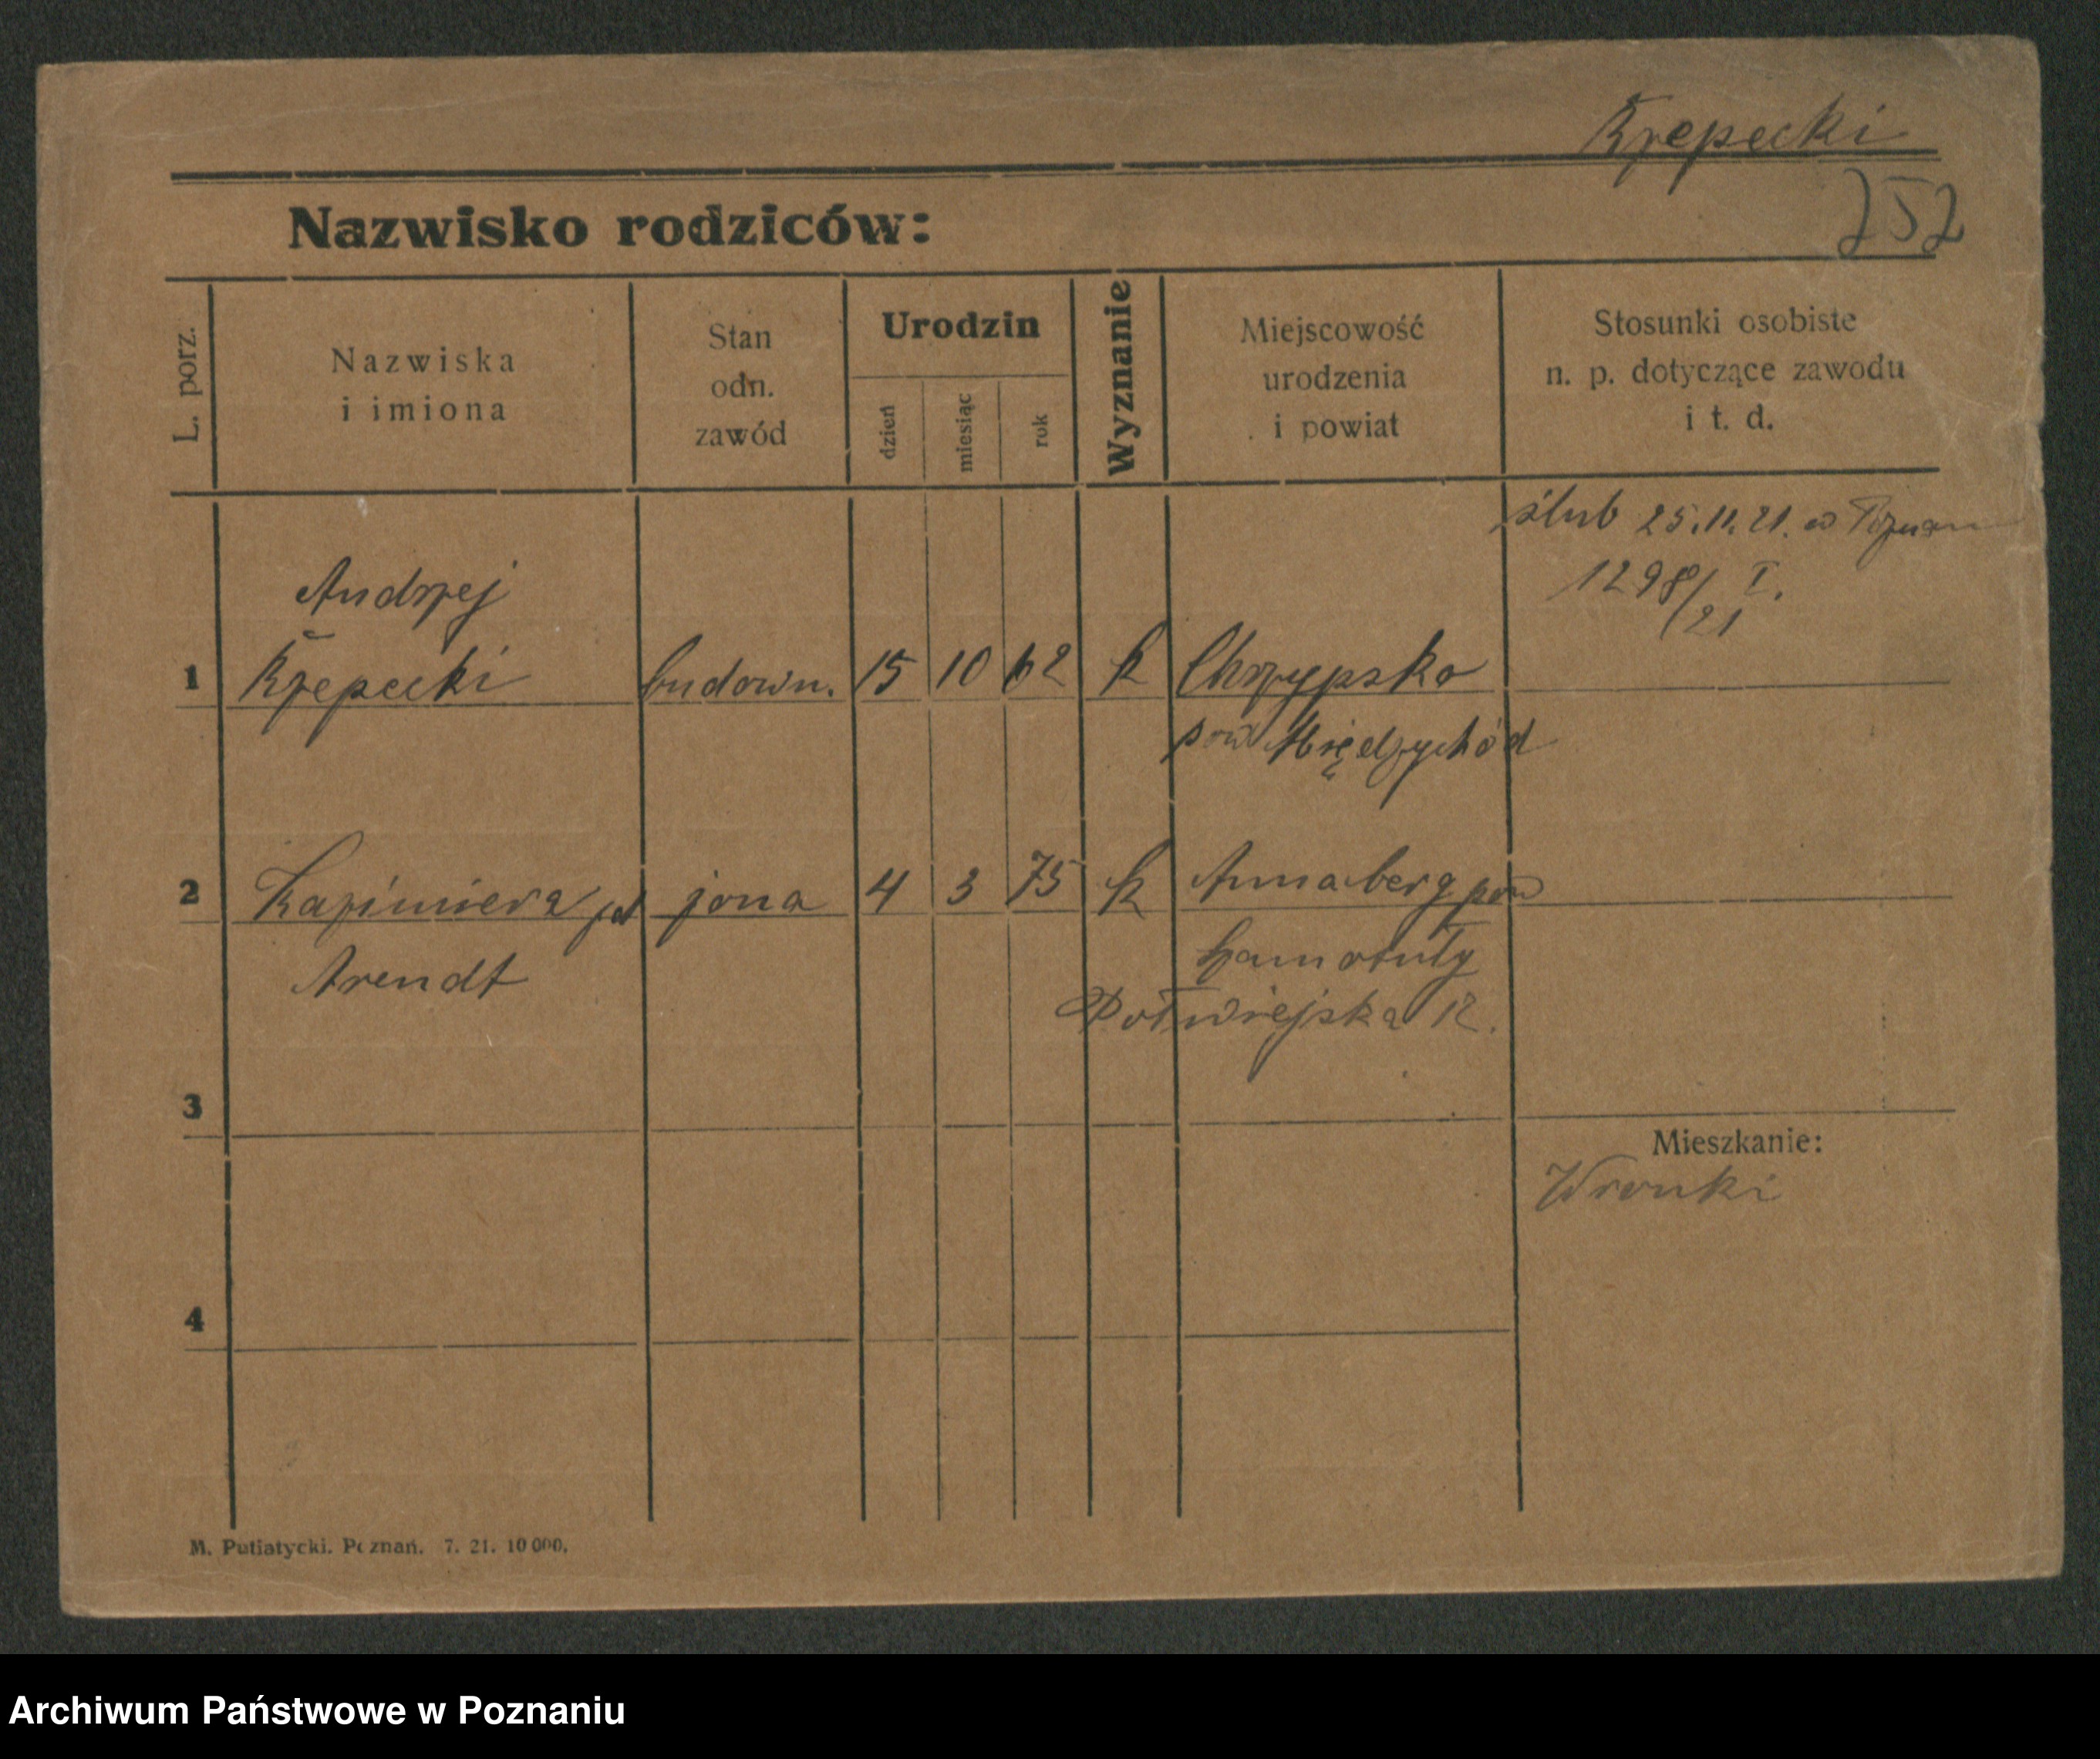 Rzepecki
252
Nazwisko rodziców:
L. porz.
Nazwiska
i imiona
Stan
odn.
zawód
Urodzin
dzień
miesiąc
rok
Wyznanie
Miejscowość
urodzenia
i powiat
Stosunki osobiste
n. p. dotyczące zawodu
i t. d.
ślub 25.11.21. w Poznan
1298/21 I.
Andrzej
1 Rzepecki budown. 15 10 62 k Chrzypsko
pow Międzychód
2 Kazimiera zd żona 4 3 75 k Annaberg pow
Arendt Szamotuły
Półwiejska 12.
3
Mieszkanie:
Wronki
4
M. Putiatycki. Poznań. 7. 21. 10 000.
Archiwum Państwowe w Poznaniu